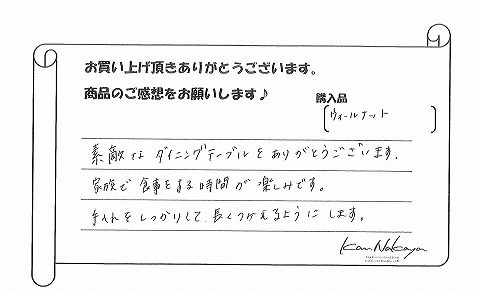 お買い上げ頂きありがとうございます。
商品のご感想をお願いします♪
購入品
ウォールナット
素敵なダイニングテーブルをありがとうございます。
家族で食事をする時間が楽しみです。
手入れをしっかりして、長くつかえるようにします。
Kan Nakaya